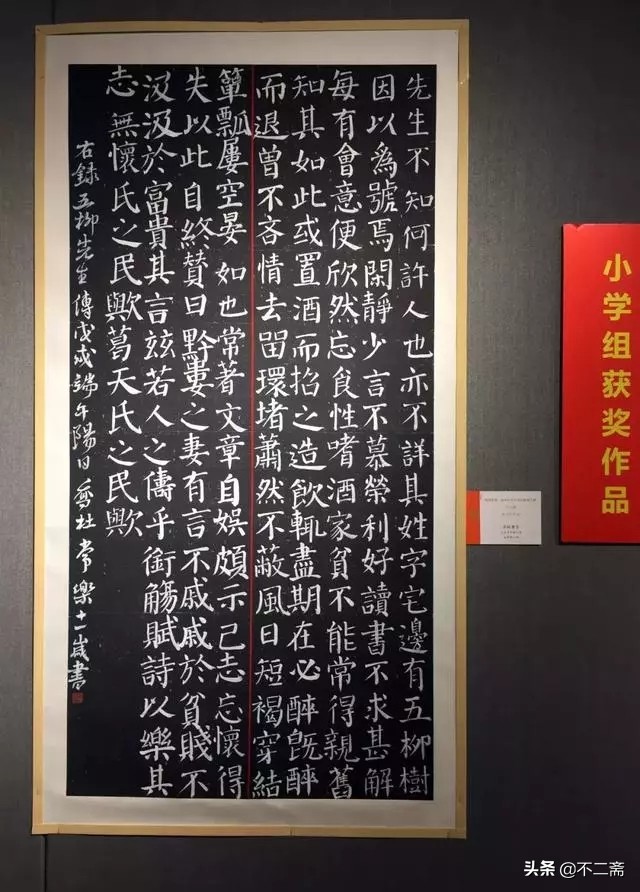 先生不知何許人也亦不詳其姓字宅邊有五柳樹
因以爲號焉閑靜少言不慕榮利好讀書不求甚解
每有會意便欣然忘食性嗜酒家貧不能常得親舊
知其如此或置酒而招之造飲輒盡期在必醉既醉
而退曾不吝情去畱環堵蕭然不蔽風日短褐穿結
簞瓢屢空晏如也常著文章自娛頗示己志忘懷得
失以此自終贊曰黔婁之妻有言不戚戚於貧賤不
汲汲於富貴其言玆若人之儔乎銜觴賦詩以樂其
志無懷氏之民歟葛天氏之民歟
右錄五柳先生傳戊戌端午陽日杜常樂十一歲書
小学组获奖作品
头条 @不二斋